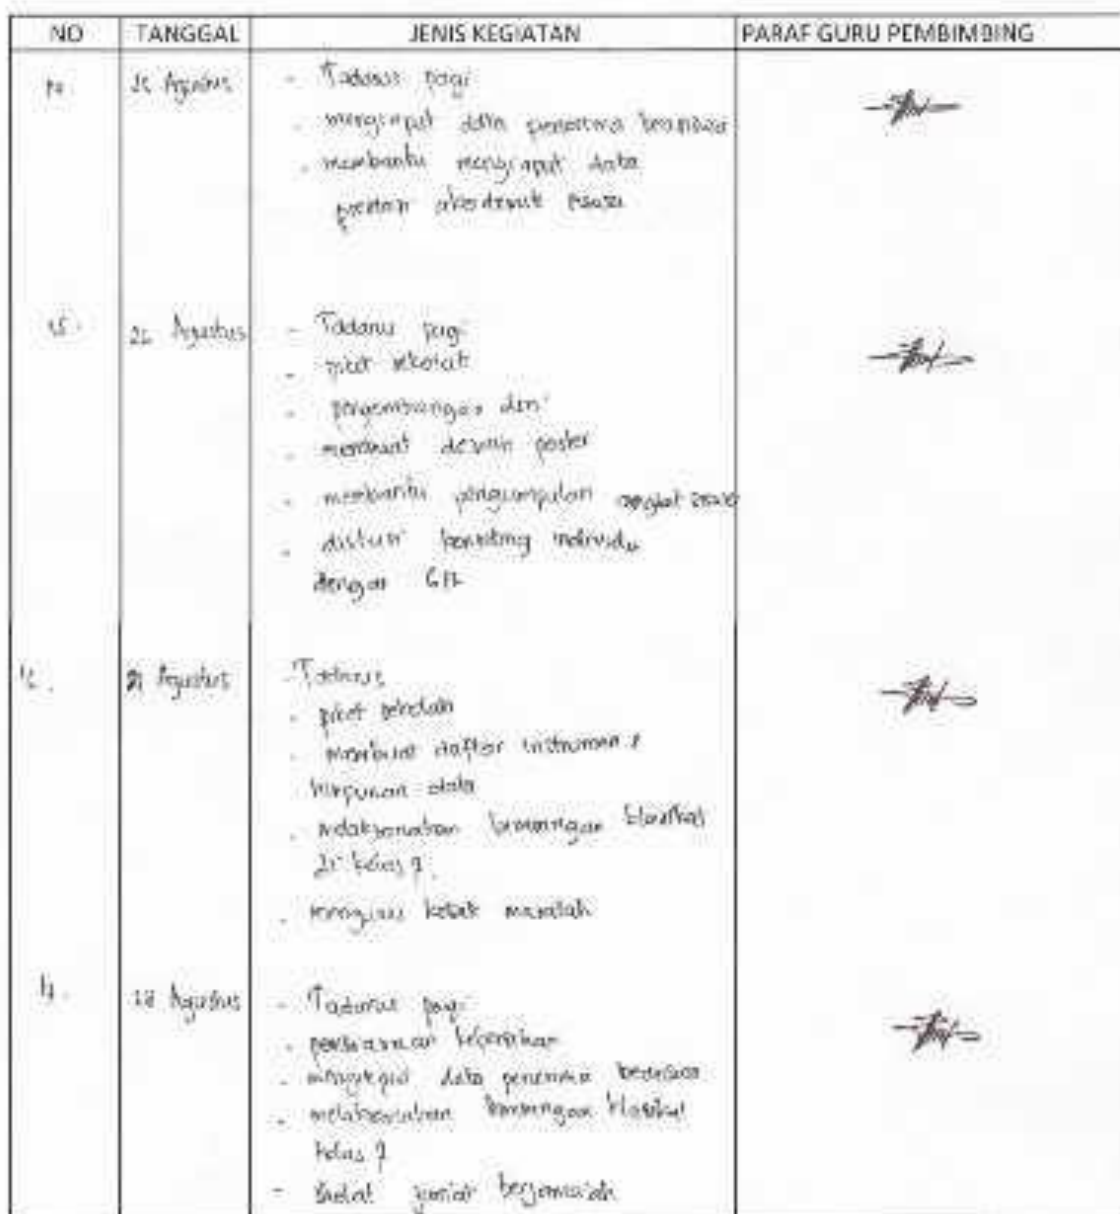 NO TANGGAL JENIS KEGIATAN PARAF GURU PEMBIMBING
25 Agustus - Tadarus pagi
- menginput data penerima beasiswa
- membantu menginput data
akademik siswa
15. 26 Agustus - Tadarus pagi
- piket sekolah
- pengembangan diri
- membuat desain poster
- membantu pengumpulan angket siswa
- diskusi konseling individu
dengan GBK
16. Agustus - Tadarus
- piket sekolah
- membuat daftar instrumen
himpunan data
- melaksanakan bimbingan klasikal
di kelas
- mengisi kotak masalah
28 Agustus - Tadarus pagi
- kebersihan
- menginput data penerima beasiswa
- melaksanakan bimbingan klasikal
kelas
- Shalat berjamaah